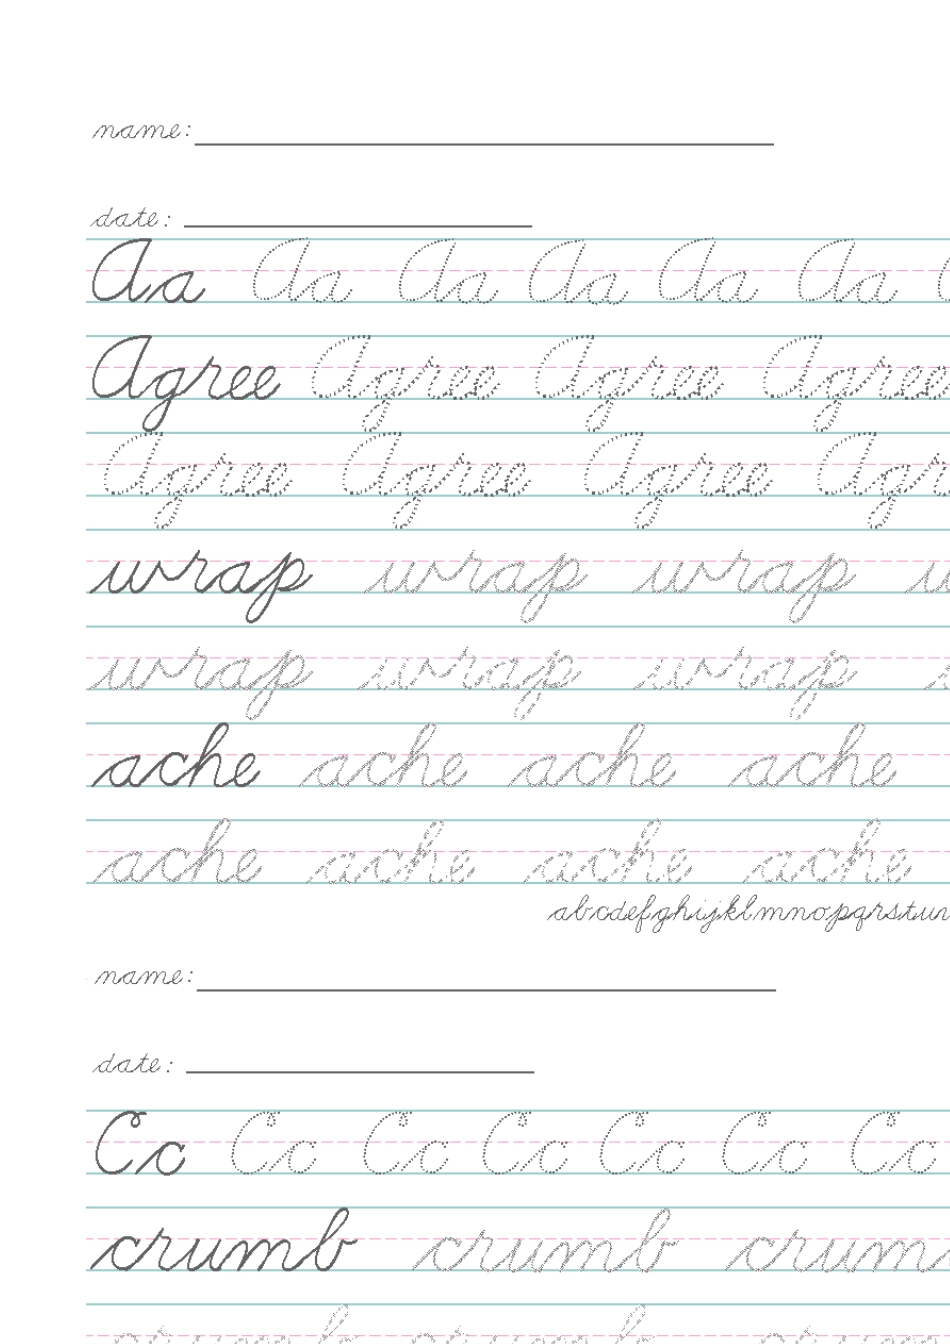 name:
date:
Aa Aa Aa Aa Aa Aa
Agree Agree Agree Agree
Agree Agree Agree Agr
wrap wrap wrap w
wrap wrap wrap
ache ache ache ache
ache ache ache ache
abcdefghijklmnopqrstuv
name:
date:
Cc Cc Cc Cc Cc Cc Cc
crumb crumb crum
crumb crumb crum